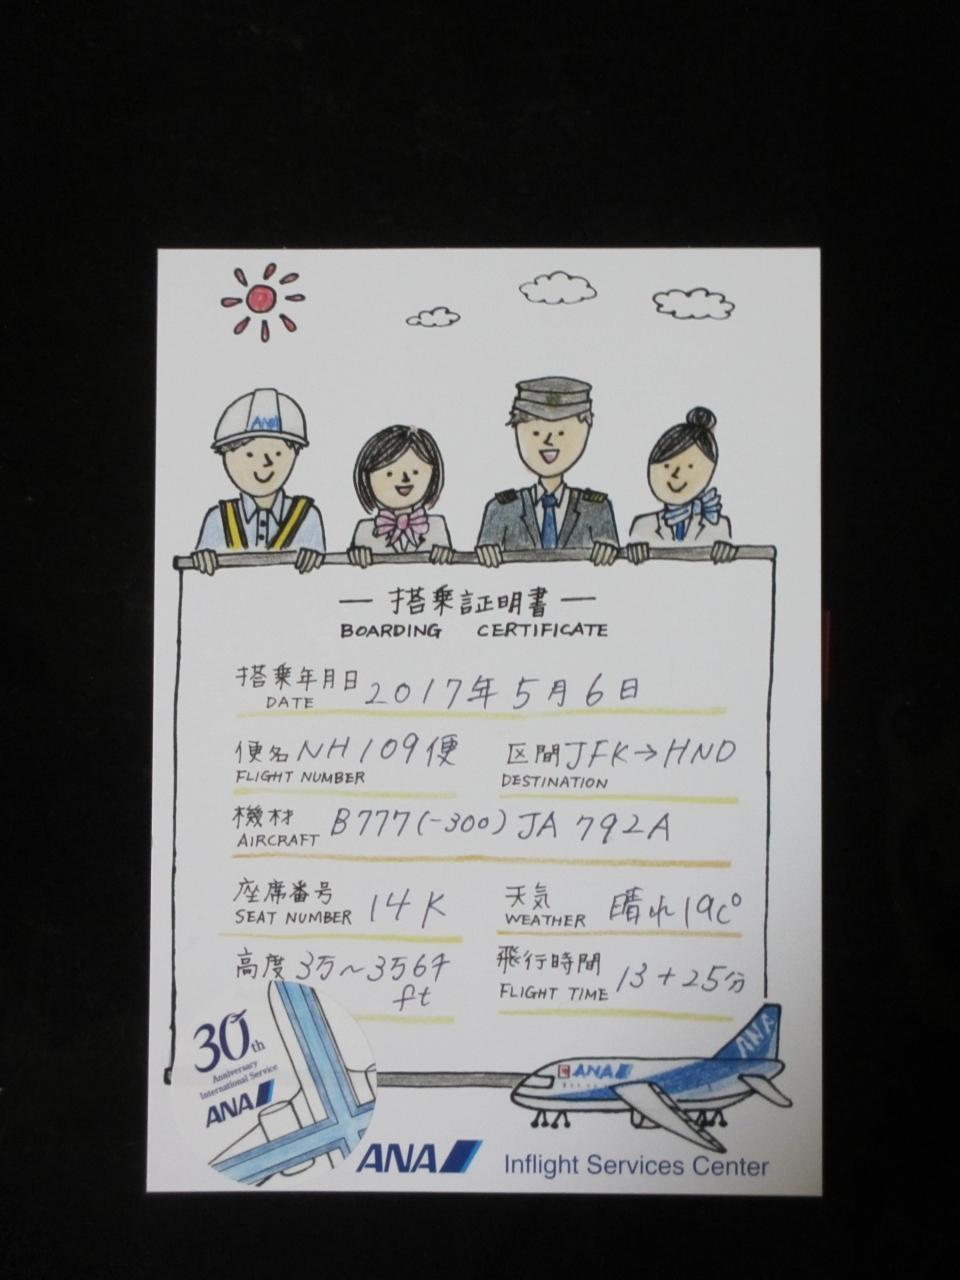 ANA
— 搭乗証明書 —
BOARDING CERTIFICATE
搭乗年月日 2017年5月6日
DATE
便名 NH109便
FLIGHT NUMBER
区間 JFK→HND
DESTINATION
機材 B777(-300) JA792A
AIRCRAFT
座席番号 14K
SEAT NUMBER
天気 晴れ 19C°
WEATHER
高度 3万~3万6千
ft
飛行時間 13+25分
FLIGHT TIME
30th
Anniversary
International Service
ANA
ANA
ANA
ANA Inflight Services Center